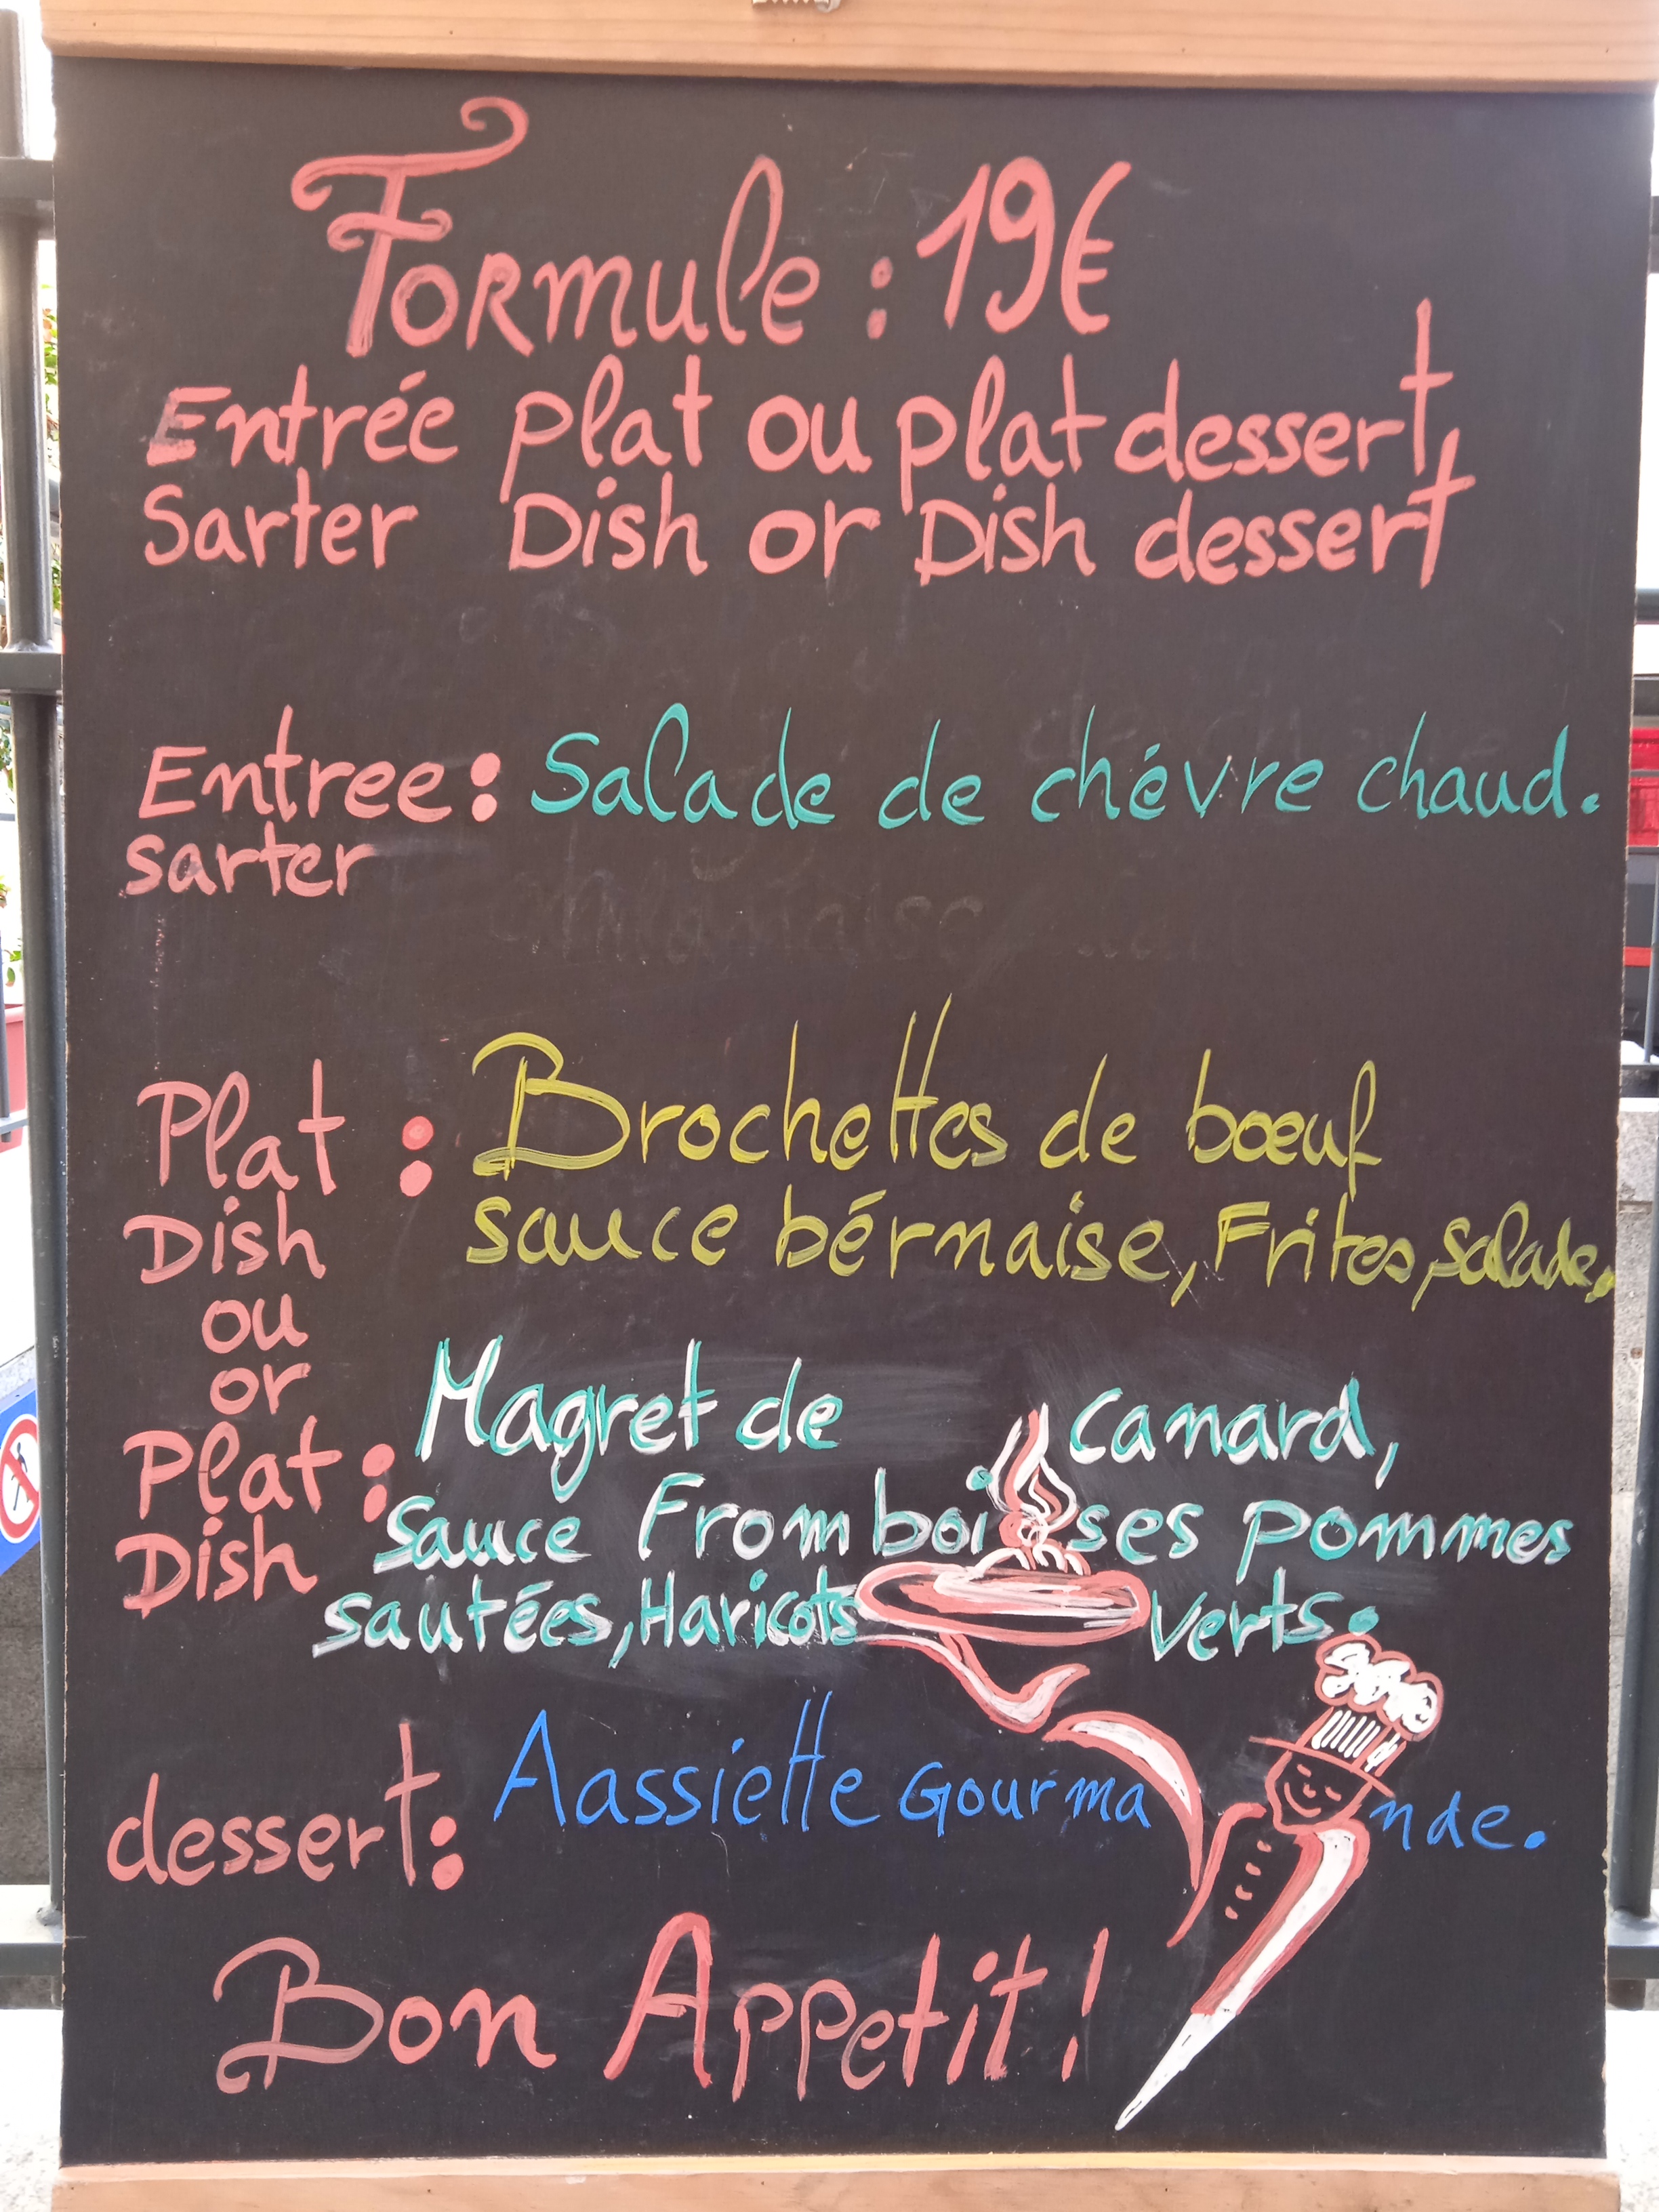 Formule : 19€
Entrée plat ou plat dessert,
Sarter Dish or Dish dessert
Entree : Salade de chévre chaud.
sarter
Plat : Brochettes de bœuf
Dish sauce bérnaise, Frites, salade.
ou
or
Plat : Magret de canard,
Dish Sauce Fromboises pommes
sautées, Haricots verts.
dessert : Aassiette Gourmande.
Bon Appetit !